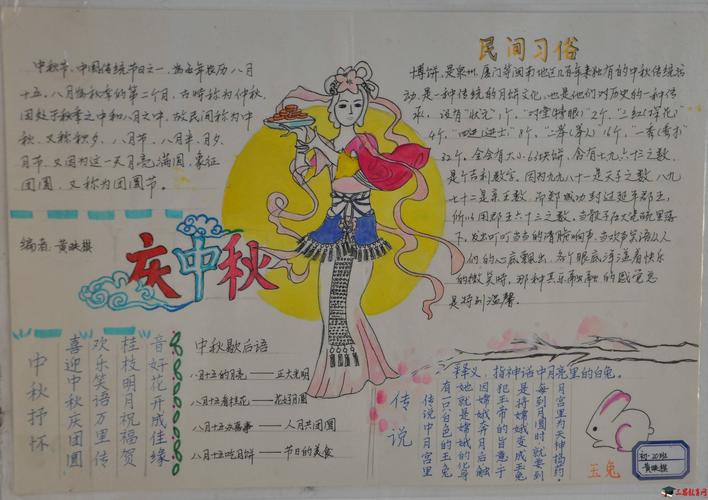 中秋节,中国传统节日之一,为每年农历八月
十五,八月为秋季的第二个月,古时称为仲秋,
因处于秋季之中和八月之中,故民间称为中
秋,又称秋夕、八月节、八月半、月夕、
月节,又因为这一天月亮满圆,象征
团圆,又称为团圆节。
编者:黄映琪
庆中秋
民间习俗
博饼,是泉州、厦门等闽南地区几百年来独有的中秋传统活
动,是一种传统的月饼文化,也是他们对历史的一种传
承,设有“状元”1个,“对堂(榜眼)”2个,“三红(探花)”
4个,“四进(进士)”8个,“二举(举人)”16个,“一秀(秀才)”
32个,全会有大小63块饼,含有七九六十三之数,
是个吉利数字。因为九九八十一是天子之数,八九
七十二是亲王数,而郑成功封过延平郡王,
所以用郡王六十三之数。当骰子在大瓷碗里落
下,发出叮叮当当的清脆响声,当欢声笑语从人
们的心底飘出,各个眼底洋溢着快乐
的微笑时,那种其乐融融的感觉总
是特别温馨。
中秋抒怀
喜迎中秋庆团圆
欢乐笑语万里传
桂枝明月祝福贺
音好花开成佳缘
中秋歇后语
八月十五的月亮——正大光明
八月十五看桂花——花好月圆
八月十五办喜事——人月共团圆
八月十五吃月饼——节日的美食
传说
释义:指神话中月亮里的白兔。
传说中月宫里
有一只白色的玉兔
她就是嫦娥的化身
因嫦娥奔月后触
犯玉帝的旨意于
是将嫦娥变成玉兔
每到月圆时就要到
月宫里为天神捣药
玉兔
初一20班
黄映琪
三思教育网